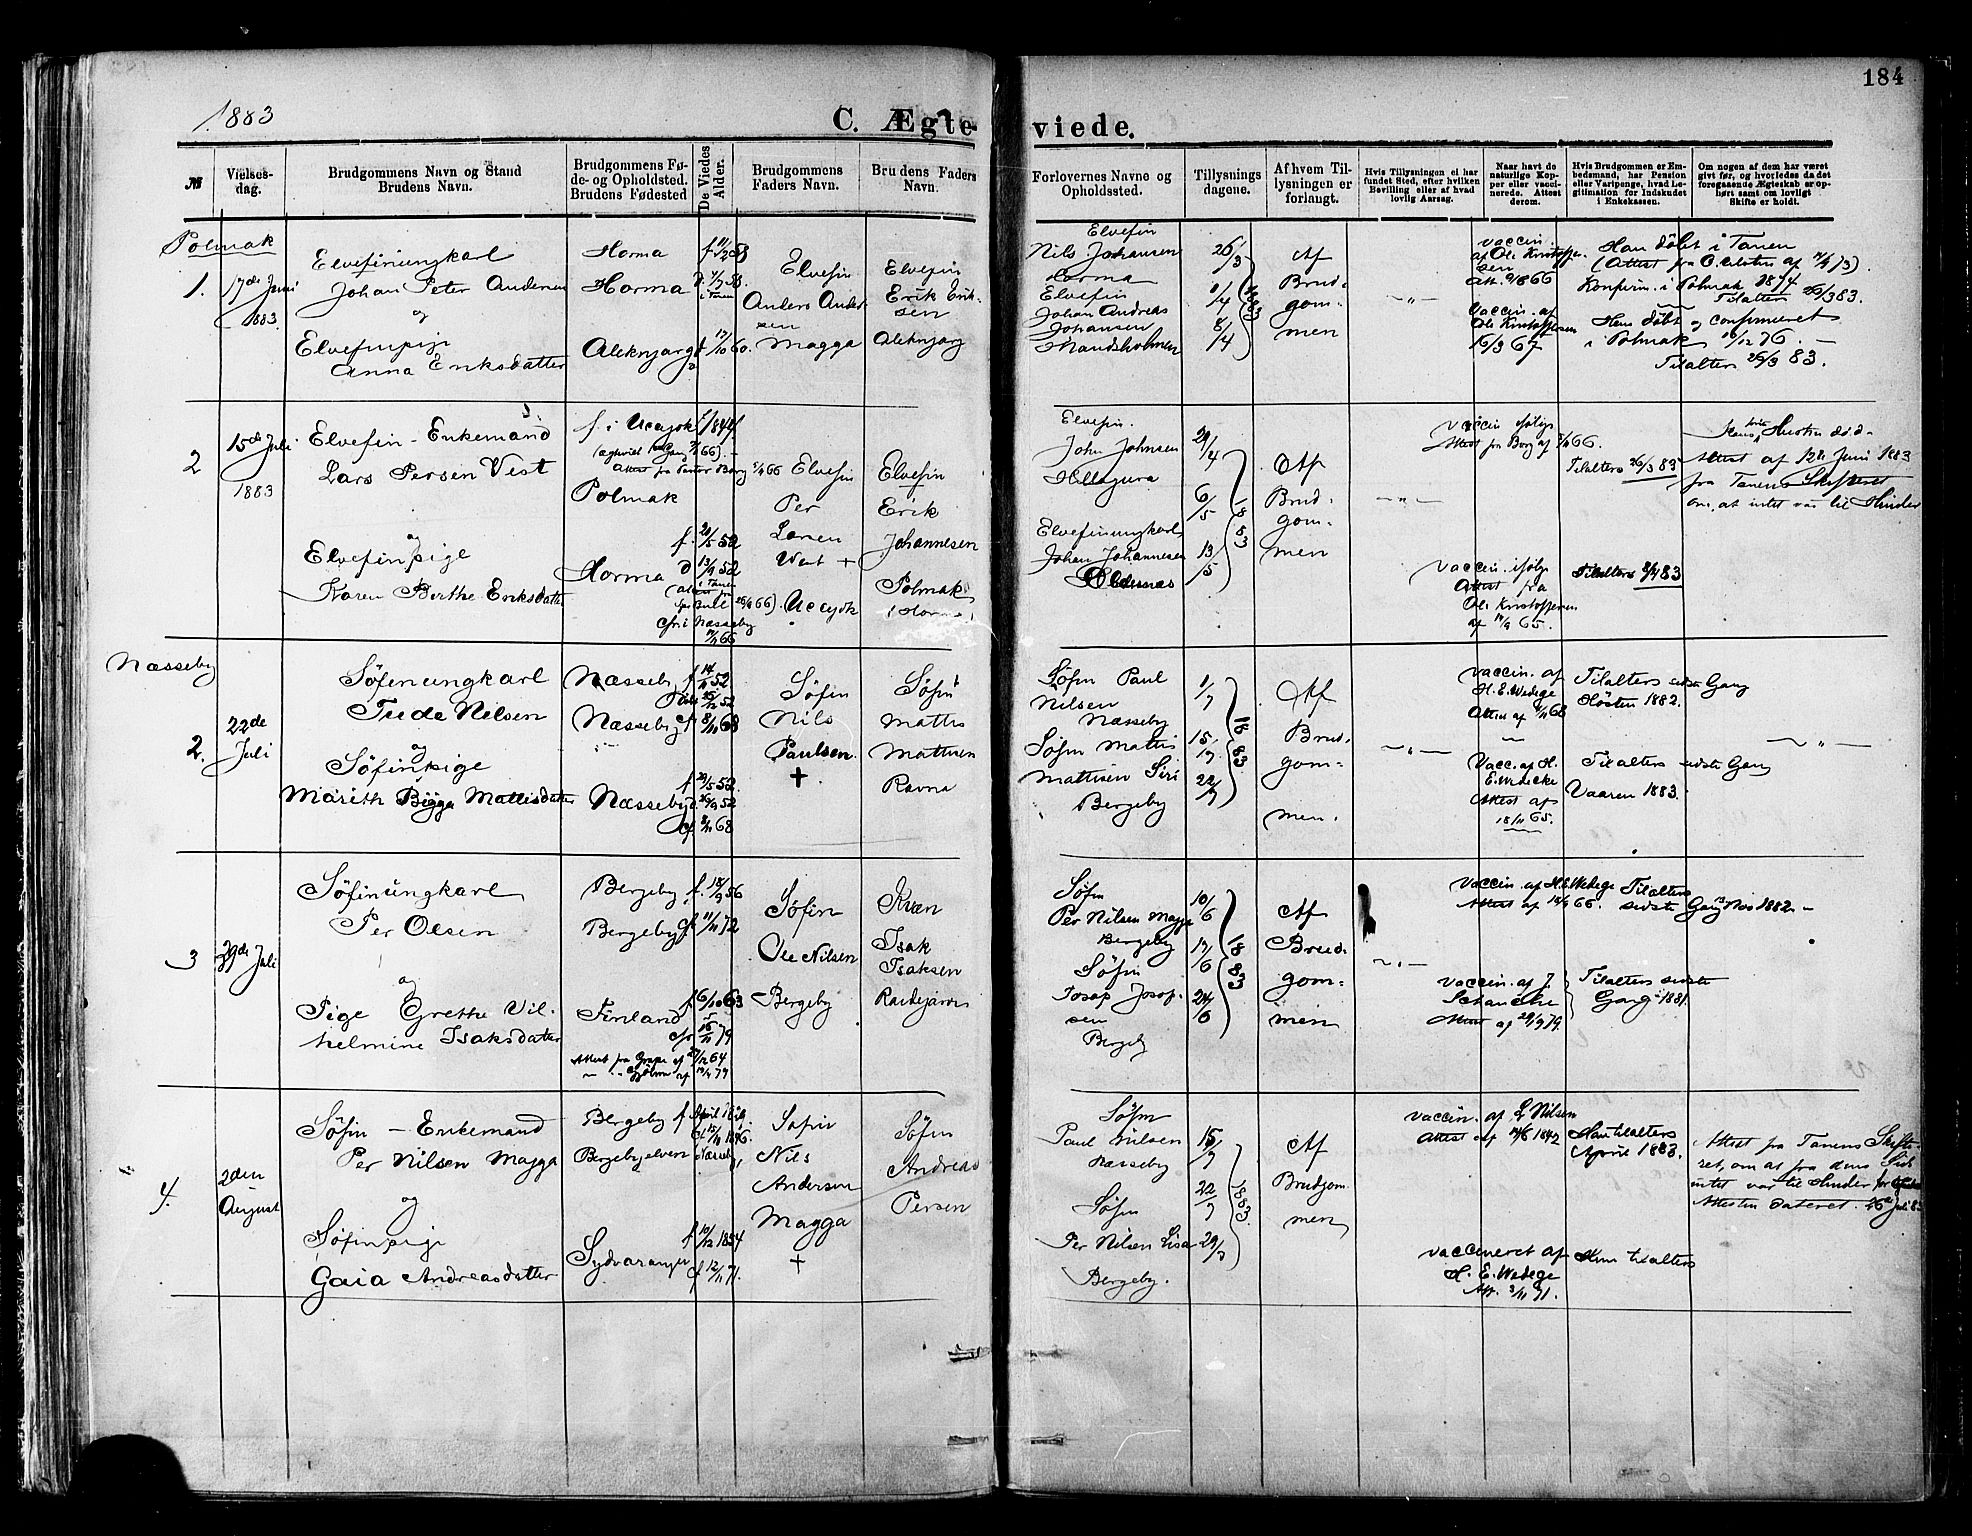 184
1883
C. Ægteviede.
№
Vielsesdag.
Brudgommens Navn og Stand
Brudens Navn.
Brudgommens Fø-
de- og Opholdsted.
Brudens Fødested
De Viedes
Alder.
Brudgommens
Faders Navn.
Brudens Faders
Navn.
Forlovernes Navne og
Opholdssted.
Tillysnings
dagene.
Af hvem Til-
lysningen er
forlangt.
Hvis Tillysningen ei har
fundet Sted, efter hvilken
Bevilling eller af hvad
lovlig Aarsag.
Naar havt de
naturlige Kop-
per eller vacci-
nerede. Attest
derom.
Hvis Brudgommen er Em-
bedsmand, har Pension
eller Vartpenge, hvad Le-
gitimation for Indskudet
i Enkekassen.
Om nogen af dem har været
givt før, og hvorledes da det
foregaaende Ægteskab er op-
hørt samt om lovligt
Skifte er holdt.
Polmak
1.
17de Juni
1883
Elvefinungkarl
Johan Peter Andersen
og
Elvefinpige
Anna Eriksdatter
Horma
Horma
Aleknjarg
Elvefin
Anders Ander
sen
Magga
Elvefin
Erik Erik-
sen
Aleknjarg
Elvefin
Nils Johansen
Horma
Elvefin
Johan Andreas
Johansen
26/3
1/4
8/4
1883
Af
Brud-
gom-
men
- " -
vaccin.
af Ole Kristoffer-
sen
Vaccin. af
Ole Kristoffersen
16/3 67
Han døbt i Tanen
Konfirm. i Polmak
Tilalters 26/3 83.
Hun døbt og confirmeret
i Polmak 10/12 76. -
Tilalters 26/3 83.
2
15de Juli
1883
Elvefin - Enkemand
Lars Persen Vest
og
Elvefinpige
Karen Birthe Eriksdatter
f. i Utsjok 1844
Polmak
Horma
f. 20/5 52
D 13/9 52
cfr. i Næsseby
Elvefin
Per
Larsen
Vest +
Utsjok
Elvefin
Erik
Johannesen
Polmak
(Horma)
Elvefin.
John Johnsen
Hillagura
Elvefinungkarl
Johan Johannesen
29/4
6/5
13/5
1883
Af
Brud-
gom-
men
- " -
vaccin ifølge
Attest fra Borg af
vaccin. ifølge
Attest fra
Ole Kristoffersen
af 14/9 65.
Tilalters 26/3 83
Tilalters 8/4 83
Hans første Hustru død-
Attest af 12te Juni 1883
fra Tanens Skifteret
om, at intet var til Hinder
Næsseby
2.
22de
Juli
Søfinungkarl
Tude Nilsen
og
Søfinpige
Marith Bigga Mattisdatter
Næsseby
Næsseby
Næsseby
f. 14/11 52
cf. 8/11 68
f. 29/5 52.
cf. 8/11 68
Søfin
Nils
Paulsen.
+
Søfin
Mattis
Mattisen
Ravna
Søfin Paul
Nilsen
Næsseby
Søfin Mattis
Mattisen Siri
Bergeby
1/7
15/7
22/7
1883
Af
Brud-
gom-
men.
- " -
Vaccin. af
H. E. Wedege
Attest af 8/11 68
Vacc. af H.
E. Wedeke
Attest af
18/11 65.
Tilalters sidste Gang
Høsten 1882.
Tilalters sidste Gang
Vaaren 1883.
- " -
3
29de Juli
Søfinungkarl
Per Olsen
og
Pige Grethe Vil-
helmine Isaksdatter
Bergeby
Bergeby
Finland
f. 18/9 56
cf. 11/11 72
f. 6/10 63
cfr 16/11 79
Søfin
Ole Nilsen
Bergeby
Kvæn
Isak
Isaksen
Søfin
Per Nilsen Magga
Bergeby
Søfin
Josap Josap-
sen
Bergeby
10/6
17/6
24/6
1883
Af
Brud-
gom-
men
- " -
Vaccin. af H. E. Wedege
Attest af 18/9 66.
vaccin. af J.
Schancke
Attest af 29/9 79.
Tilalters
sidste Gang Nov 1882. -
Tilalters sidste
Gang 1881.
4.
2den
August
Søfin - Enkemand
Per Nilsen Magga
og
Søfinpige
Gaia Andreasdatter
Bergeby
Bergebyelven
Sydvaranger
f 10/12 1854
cf 12/11 71.
Søfin
Nils
Andersen
Magga
+
Søfin
Andreas
Persen
Søfin
Paul Nilsen
Næsseby
Søfin
Per Nilsen Lisa
Bergeby.
15/7
22/7
29/7
1883.
Af
Brudgom
men
vaccin. af L Nilsen
Attest af 14/6 1842
vaccineret af
H. E. Wedege
Att. 3/11 71.
Han tilalters
April 1883.
Hun tilalters
Attest fra Tanens Skifte-
ret, om at fra dens Side
intet var til Hinder for
Attesten dateret 26de Juli 83